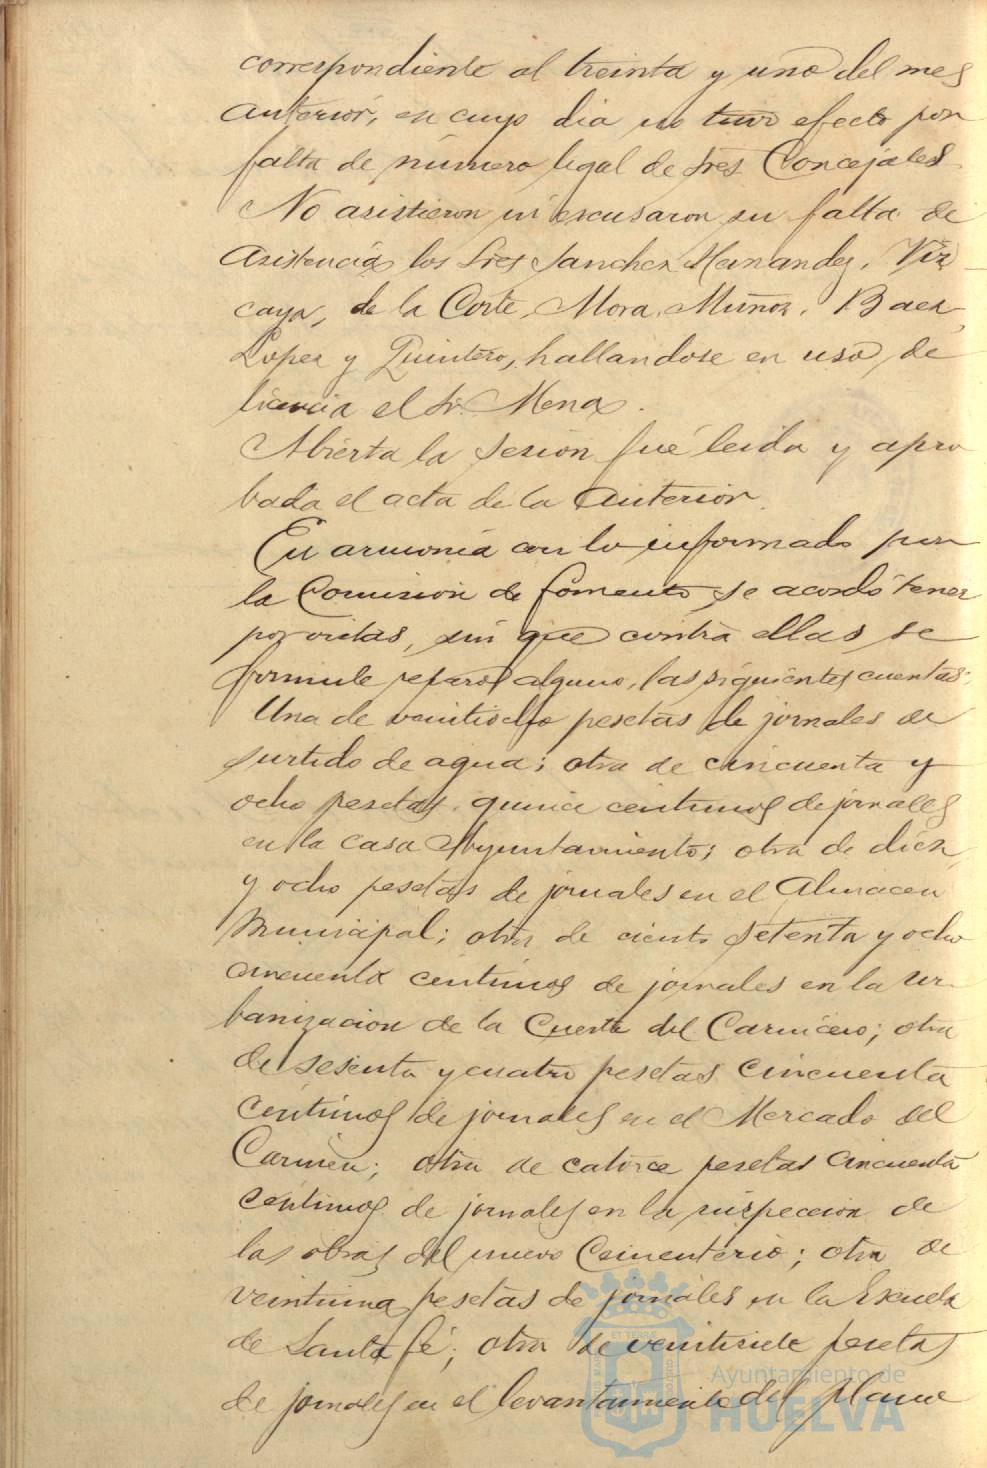 correspondiente al treinta y uno del mes
anterior, en cuyo dia no tuvo efecto por
falta de número legal de Sres Concejales.
No asistieron ni escusaron su falta de
asistencia los Sres Sanchez Hernandez, Viz-
caya, de la Corte, Mora, Muñoz, Baez,
Lopez y Quintero, hallandose en uso de
licencia el Sr. Mena.
Abierta la sesion fué leida y apro
bada el acta de la anterior.
En armonia con lo informado por
la Comision de fomento se acordó tener
por vistas, sin que contra ellas se
formule reparos alguno, las siguientes cuentas:
Una de veintiocho pesetas de jornales de
surtido de agua; otra de cincuenta y
ocho pesetas quince centimos de jornales
en la casa Ayuntamiento; otra de diez
y ocho pesetas de jornales en el Almacen
Municipal; otra de ciento setenta y ocho
cincuenta centimos de jornales en la ur-
banizacion de la Cuesta del Carnicero; otra
de sesenta y cuatro pesetas cincuenta
centimos de jornales en el Mercado del
Carmen; otra de catorce pesetas cincuenta
centimos de jornales en la inspeccion de
las obras del nuevo Cementerio; otra de
veintiuna pesetas de jornales en la Escuela
de Santa fé; otra de veintisiete pesetas
de jornales en el levantamiento del plano
Ayuntamiento de
HUELVA